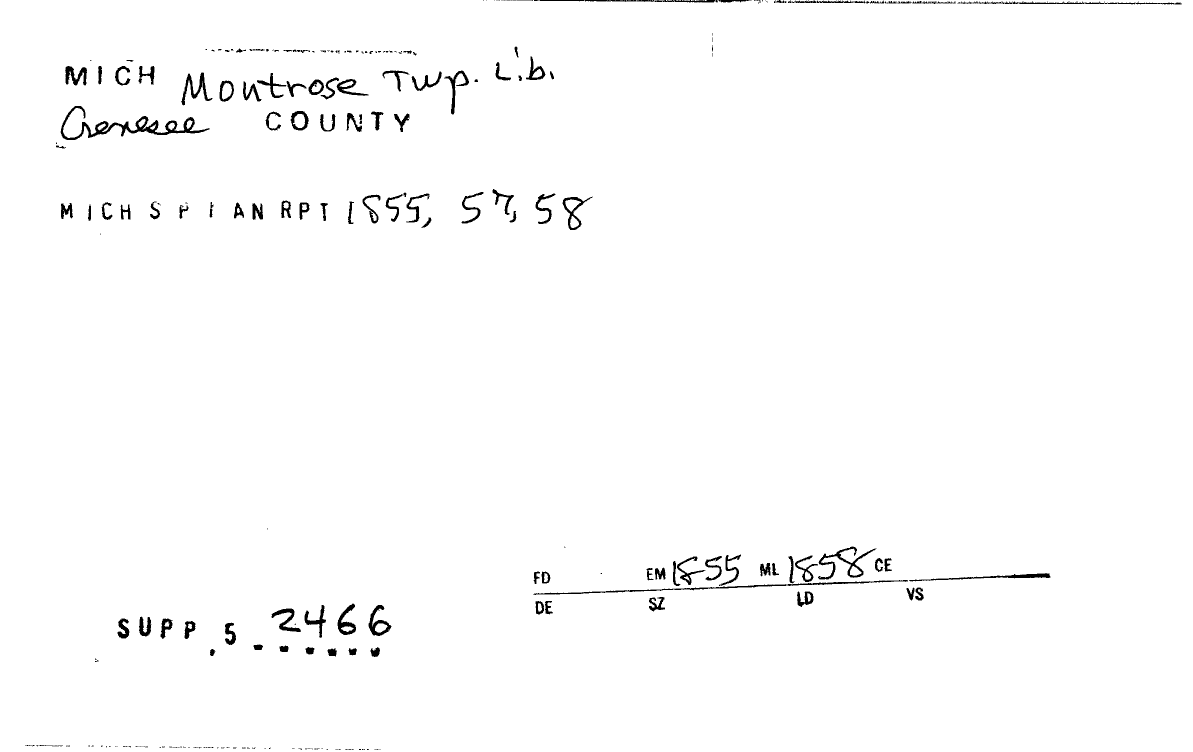 MICH Montrose Twp. Lib.
Genesee COUNTY
MICH S P I AN RPT 1855, 57, 58
FD EM 1855 ML 1858 CE
DE SZ LD VS
SUPP. 5 2466